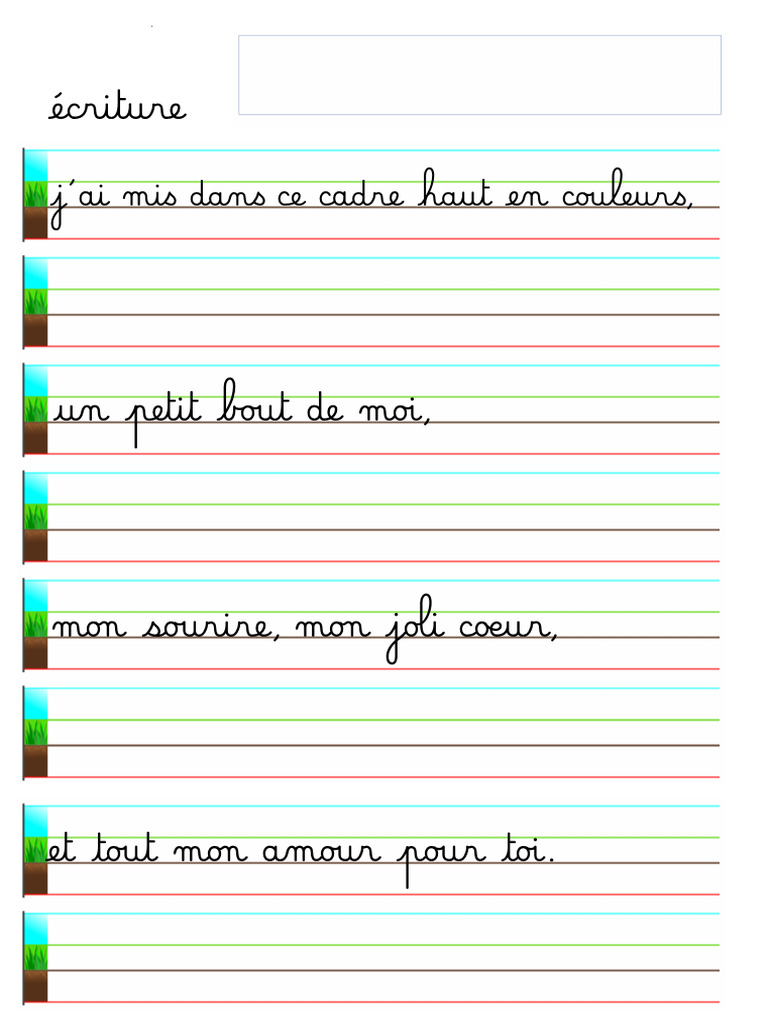 écriture
j'ai mis dans ce cadre haut en couleurs,
un petit bout de moi,
mon sourire, mon joli coeur,
et tout mon amour pour toi.